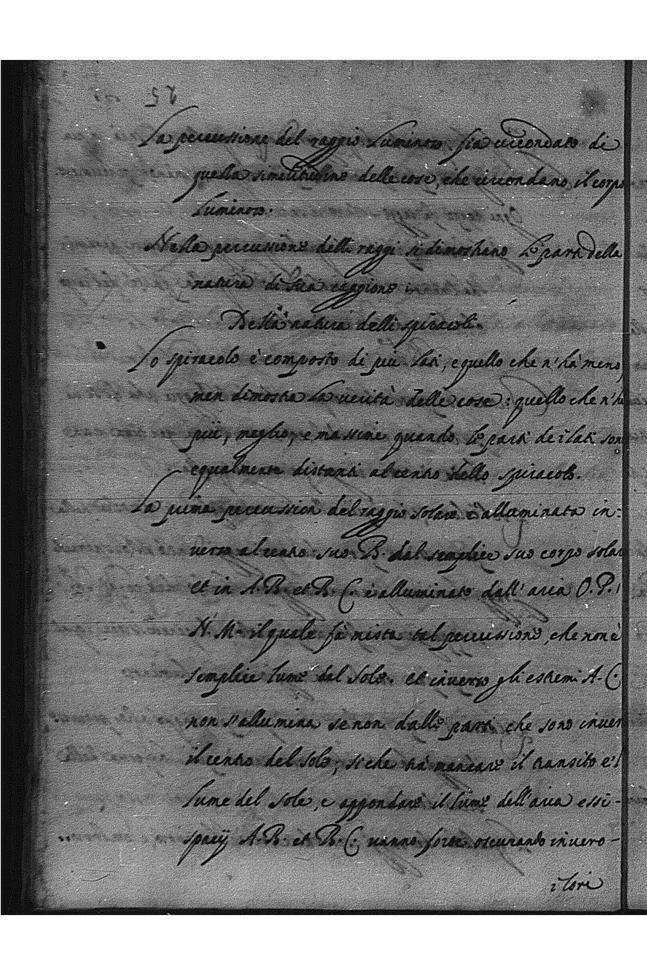 La percussione del raggio Luminoso sia circondato di
quella similitudine delle cose, che circondano il corpo
Luminoso.
Nella percussione delli raggi si dimostrano le parti della
natura di sua caggione.
Della natura delli spiracoli.
Lo spiracolo è composto di più lati, e quello che n'hà meno,
men dimostra la verità delle cose: quello che n'hà
più, meglio, e massime quando le parti de i lati son
equalmente distanti al centro dello spiracolo.
La prima percussion del raggio solare è alluminata in-
verso al centro suo B. dal semplice suo corpo solar
et in A.B. et B.C. è alluminato dall'aria O.P.
N.M. il quale fà mista tal percussione, che non è
semplice lume dal sole. et inverso gli estremi A.C.
non s'allumina se non dalle parti che sono inver
il centro del sole; si che trà mancare il transito e'l
lume del sole, e abbondare il lume dell'aria essi-
spacij A.B. et B.C. vanno forte oscurando inverso-
i lori